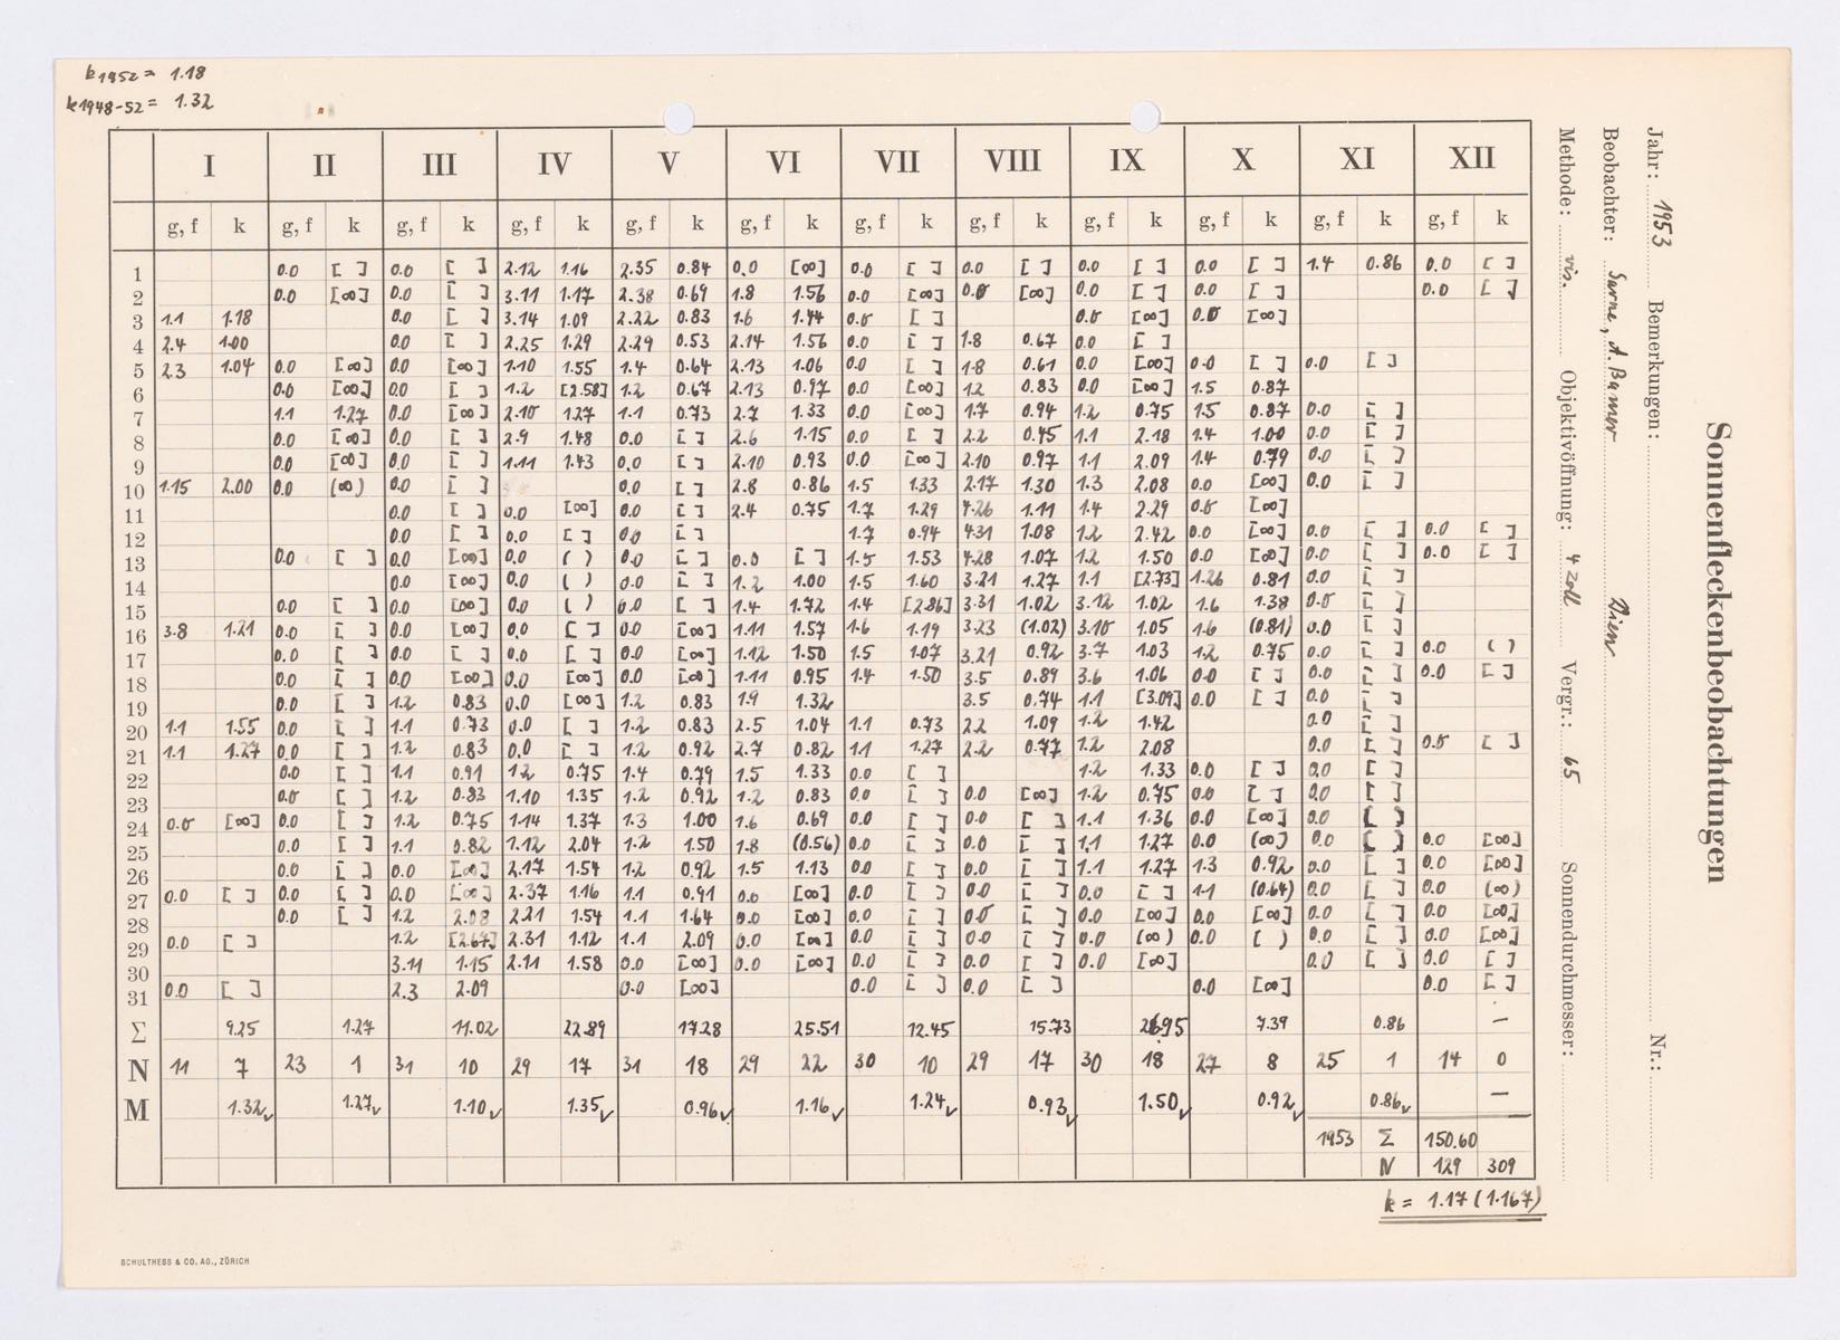 k1952 = 1.18
k1948-52 = 1.32
I II III IV V VI VII VIII IX X XI XII
g, f k g, f k g, f k g, f k g, f k g, f k g, f k g, f k g, f k g, f k g, f k g, f k
1 0.0 [ ] 0.0 [ ] 2.12 1.16 2.35 0.84 0.0 [∞] 0.0 [ ] 0.0 [ ] 0.0 [ ] 0.0 [ ] 1.4 0.86 0.0 [ ]
2 0.0 [∞] 0.0 [ ] 3.11 1.17 2.38 0.69 1.8 1.56 0.0 [∞] 0.0 [∞] 0.0 [ ] 0.0 [ ] 0.0 [ ]
3 1.1 1.18 0.0 [ ] 3.14 1.09 2.22 0.83 1.6 1.44 0.0 [ ] 0.0 [∞] 0.0 [∞]
4 2.4 1.00 0.0 [ ] 2.25 1.29 2.29 0.53 2.14 1.56 0.0 [ ] 1.8 0.67 0.0 [ ]
5 2.3 1.04 0.0 [∞] 0.0 [∞] 1.10 1.55 1.4 0.64 2.13 1.06 0.0 [ ] 1.8 0.61 0.0 [∞] 0.0 [ ] 0.0 [ ]
6 0.0 [∞] 0.0 [ ] 1.2 [2.58] 1.2 0.67 2.13 0.97 0.0 [∞] 1.2 0.83 0.0 [∞] 1.5 0.87
7 1.1 1.27 0.0 [∞] 2.10 1.27 1.1 0.73 2.7 1.33 0.0 [∞] 1.7 0.94 1.2 0.75 1.5 0.87 0.0 [ ]
8 0.0 [∞] 0.0 [ ] 2.9 1.48 0.0 [ ] 2.6 1.15 0.0 [ ] 2.2 0.45 1.1 2.18 1.4 1.00 0.0 [ ]
9 0.0 [∞] 0.0 [ ] 1.11 1.43 0.0 [ ] 2.10 0.93 0.0 [∞] 2.10 0.97 1.1 2.09 1.4 0.79 0.0 [ ]
10 1.15 2.00 0.0 (∞) 0.0 [ ] 0.0 [ ] 2.8 0.86 1.5 1.33 2.17 1.30 1.3 2.08 0.0 [∞] 0.0 [ ]
11 0.0 [ ] 0.0 [∞] 0.0 [ ] 2.4 0.75 1.7 1.29 4.26 1.11 1.4 2.29 0.0 [∞]
12 0.0 [ ] 0.0 [ ] 0.0 [ ] 1.7 0.94 4.31 1.08 1.2 2.42 0.0 [∞] 0.0 [ ] 0.0 [ ]
13 0.0 [ ] 0.0 [∞] 0.0 ( ) 0.0 [ ] 0.0 [ ] 1.5 1.53 4.28 1.07 1.2 1.50 0.0 [∞] 0.0 [ ] 0.0 [ ]
14 0.0 [∞] 0.0 ( ) 0.0 [ ] 1.2 1.00 1.5 1.60 3.21 1.27 1.1 [2.73] 1.26 0.81 0.0 [ ]
15 0.0 [ ] 0.0 [∞] 0.0 ( ) 0.0 [ ] 1.4 1.72 1.4 [2.86] 3.31 1.02 3.12 1.02 1.6 1.38 0.0 [ ]
16 3.8 1.21 0.0 [ ] 0.0 [∞] 0.0 [ ] 0.0 [∞] 1.11 1.57 1.6 1.19 3.23 (1.02) 3.10 1.05 1.6 (0.81) 0.0 [ ]
17 0.0 [ ] 0.0 [ ] 0.0 [ ] 0.0 [∞] 1.12 1.50 1.5 1.07 3.21 0.92 3.7 1.03 1.2 0.75 0.0 [ ] 0.0 ( )
18 0.0 [ ] 0.0 [∞] 0.0 [∞] 0.0 [∞] 1.11 0.95 1.4 1.50 3.5 0.89 3.6 1.06 0.0 [ ] 0.0 [ ] 0.0 [ ]
19 0.0 [ ] 1.2 0.83 0.0 [∞] 1.2 0.83 1.9 1.32 3.5 0.74 1.1 [3.09] 0.0 [ ] 0.0 [ ]
20 1.1 1.55 0.0 [ ] 1.1 0.73 0.0 [ ] 1.2 0.83 2.5 1.04 1.1 0.73 2.2 1.09 1.2 1.42 0.0 [ ]
21 1.1 1.27 0.0 [ ] 1.2 0.83 0.0 [ ] 1.2 0.92 2.7 0.82 1.1 1.27 2.2 0.77 1.2 2.08 0.0 [ ] 0.0 [ ]
22 0.0 [ ] 1.1 0.91 1.2 0.75 1.4 0.79 1.5 1.33 0.0 [ ] 1.2 1.33 0.0 [ ] 0.0 [ ]
23 0.0 [ ] 1.2 0.83 1.10 1.35 1.2 0.92 1.2 0.83 0.0 [ ] 0.0 [∞] 1.2 0.75 0.0 [ ] 0.0 [ ]
24 0.0 [∞] 0.0 [ ] 1.2 0.75 1.14 1.37 1.3 1.00 1.6 0.69 0.0 [ ] 0.0 [ ] 1.1 1.36 0.0 [∞] 0.0 [ ]
25 0.0 [ ] 1.1 0.82 1.12 2.04 1.2 1.50 1.8 (0.56) 0.0 [ ] 0.0 [ ] 1.1 1.27 0.0 (∞) 0.0 [ ] 0.0 [∞]
26 0.0 [ ] 0.0 [∞] 2.17 1.54 1.2 0.92 1.5 1.13 0.0 [ ] 0.0 [ ] 1.1 1.27 1.3 0.92 0.0 [ ] 0.0 [∞]
27 0.0 [ ] 0.0 [ ] 0.0 [∞] 2.37 1.16 1.1 0.91 0.0 [∞] 0.0 [ ] 0.0 [ ] 0.0 [ ] 1.1 (0.64) 0.0 [ ] 0.0 (∞)
28 0.0 [ ] 1.2 2.08 2.21 1.54 1.1 1.64 0.0 [∞] 0.0 [ ] 0.0 [ ] 0.0 [∞] 0.0 [∞] 0.0 [ ] 0.0 [∞]
29 0.0 [ ] 1.2 [2.67] 2.31 1.12 1.1 2.09 0.0 [∞] 0.0 [ ] 0.0 [ ] 0.0 (∞) 0.0 [ ) 0.0 [ ] 0.0 [∞]
30 3.11 1.15 2.11 1.58 0.0 [∞] 0.0 [∞] 0.0 [ ] 0.0 [ ] 0.0 [∞] 0.0 [ ] 0.0 [ ]
31 0.0 [ ] 2.3 2.09 0.0 [∞] 0.0 [ ] 0.0 [ ] 0.0 [∞] 0.0 [ ]
Σ 9.25 1.27 11.02 22.89 17.28 25.51 12.45 15.73 26.95 7.39 0.86 —
N 11 7 23 1 31 10 29 17 31 18 29 22 30 10 29 17 30 18 27 8 25 1 14 0
M 1.32✓ 1.27✓ 1.10✓ 1.35✓ 0.96✓ 1.16✓ 1.24✓ 0.93✓ 1.50✓ 0.92✓ 0.86✓ —
1953 Σ 150.60
N 129 309
k = 1.17 (1.167)
SCHULTHESS & CO. AG., ZÜRICH
Sonnenfleckenbeobachtungen
Jahr: 1953 Bemerkungen: Nr.:
Beobachter: A. Bamer Dien
Methode: vis. Objektivöffnung: 4 zoll Vergr.: 65 Sonnendurchmesser: